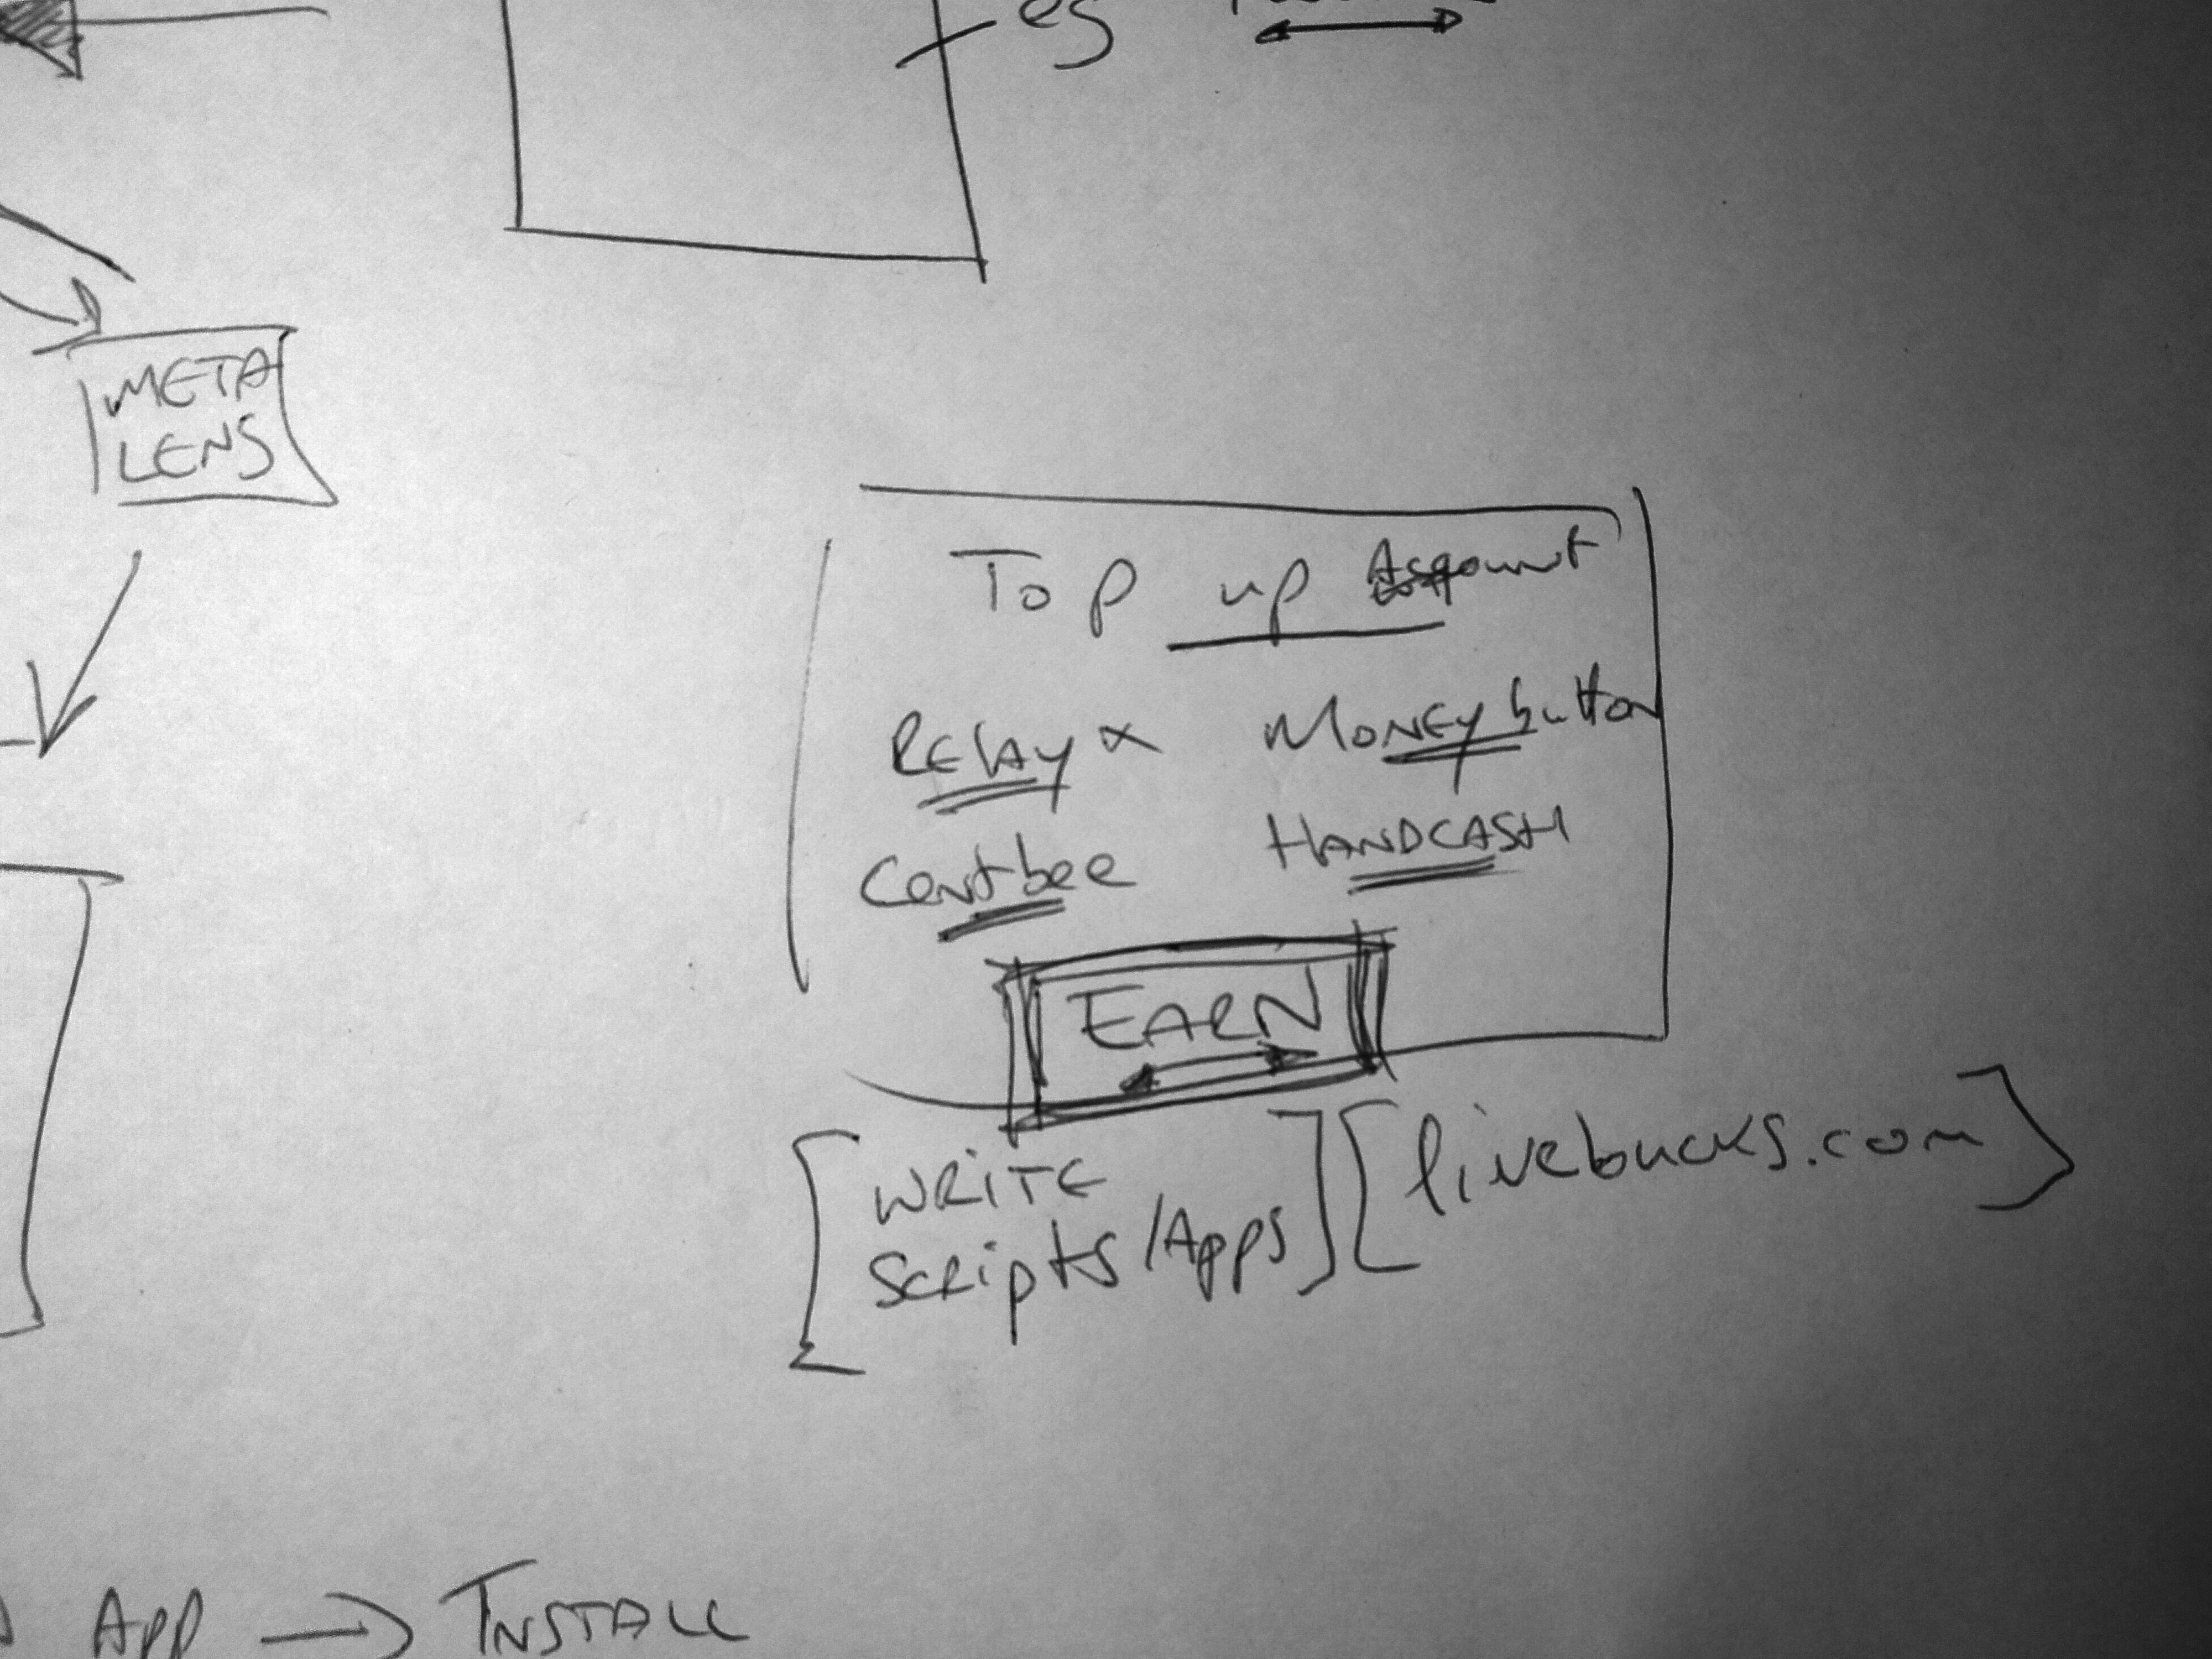 eg
META
LENS
Top up Account
RELAY x MONEY button
Centbee HANDCASH
EARN
[WRITE
Scripts/Apps] [livebucks.com]
App → INSTALL